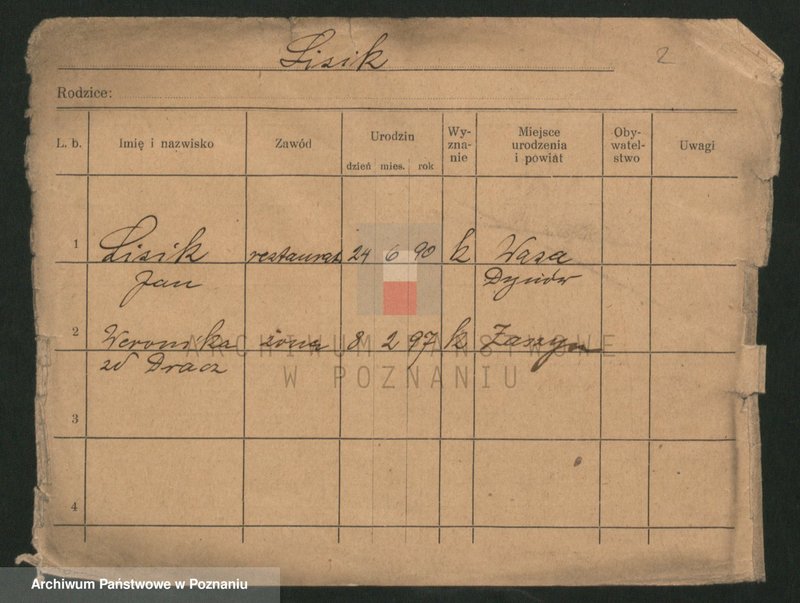 Lisik
2
Rodzice:
L. b. Imię i nazwisko Zawód Urodzin dzień mies. rok Wy-zna-nie Miejsce urodzenia i powiat Oby-watel-stwo Uwagi
1 Lisik restaurat 24 6 90 k Wara
Jan Dynów
2 Weronika żona 8 2 97 k
zd Dracz
3
4
ARCHIWUM PAŃSTWOWE
W POZNANIU
Archiwum Państwowe w Poznaniu